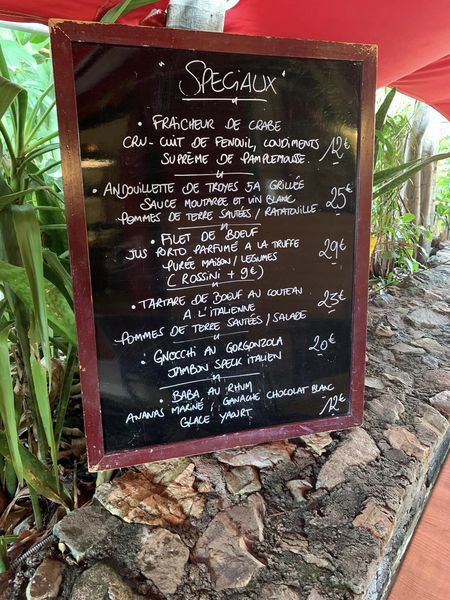 "SPECIAUX"
• FRAÎCHEUR DE CRABE
CRU-CUIT DE FENOUIL, CONDIMENTS
SUPRÊME DE PAMPLEMOUSSE. 12€
• ANDOUILLETTE DE TROYES 5A GRILLÉE
SAUCE MOUTARDE ET VIN BLANC 25€
POMMES DE TERRE SAUTÉES / RATATOUILLE
• FILET DE BOEUF
JUS PORTO PARFUMÉ A LA TRUFFE 29€
PURÉE MAISON / LEGUMES
(ROSSINI + 9€)
• TARTARE DE BOEUF AU COUTEAU 23€
A L'ITALIENNE
POMMES DE TERRE SAUTÉES / SALADE
• GNOCCHI AU GORGONZOLA 20€
JAMBON SPECK ITALIEN
• BABA AU RHUM
ANANAS MARINÉ / GANACHE CHOCOLAT BLANC 12€
GLACE YAOURT